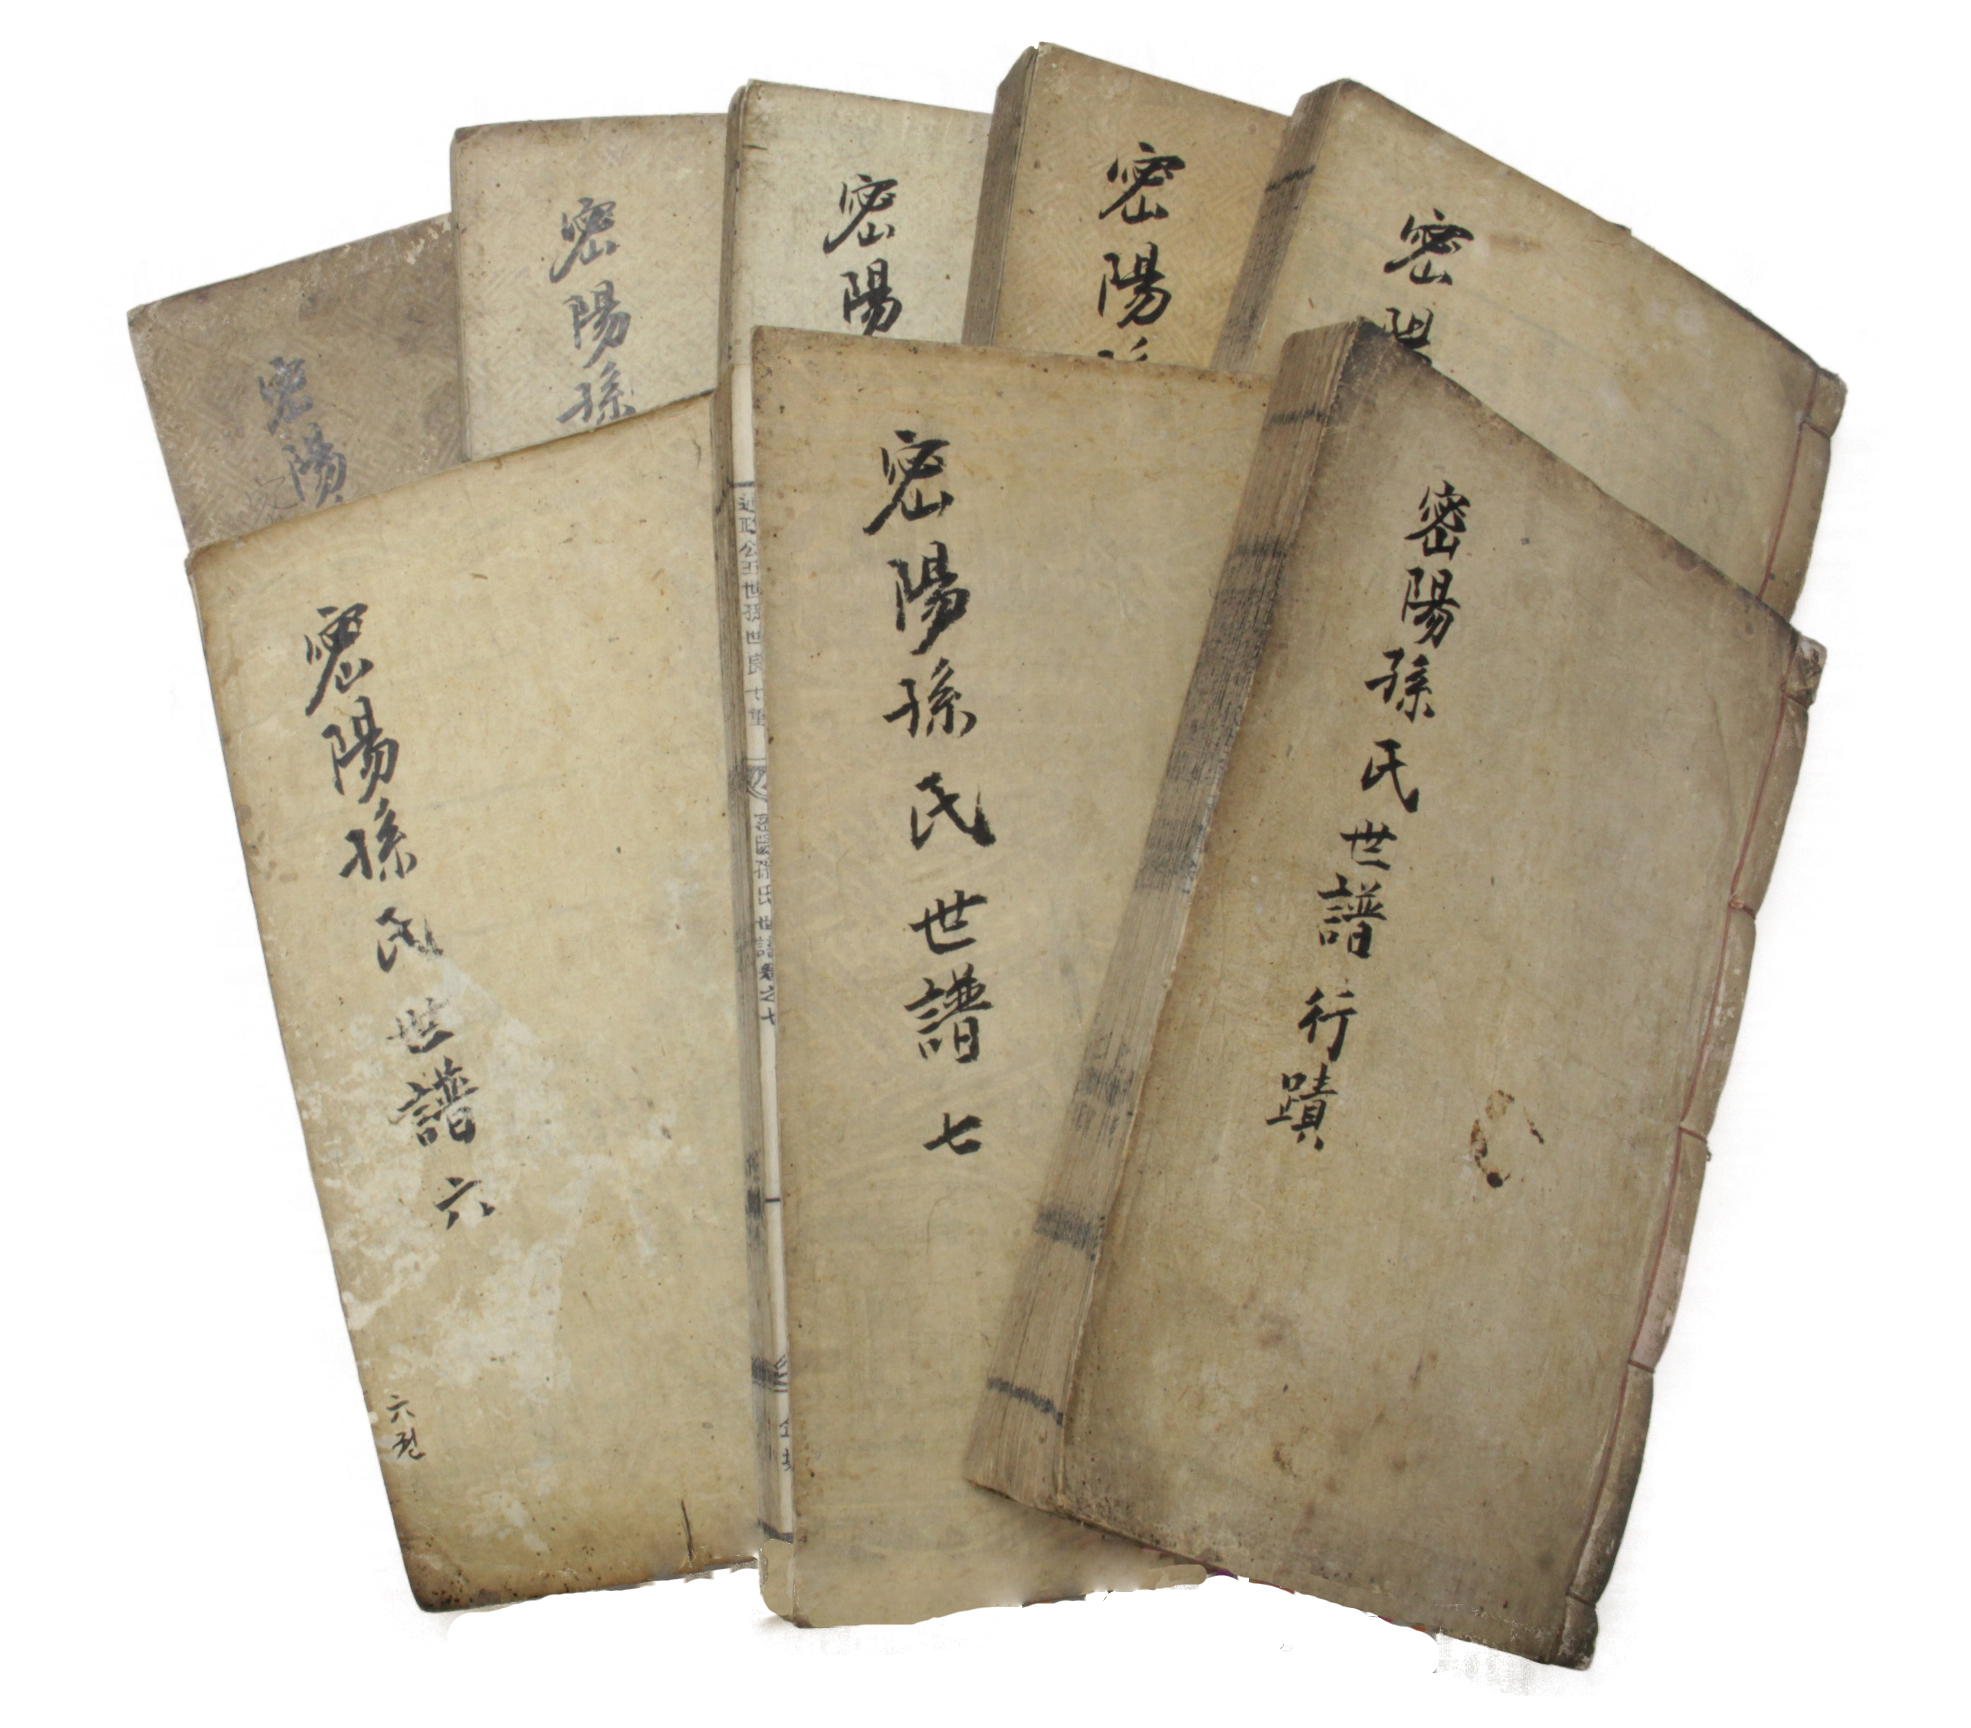 密陽
密陽孫
密陽
密陽孫
密陽
密陽孫氏世譜 六
六권
密陽孫氏世譜 七
密陽孫氏世譜 行蹟
密陽孫氏世譜卷之七